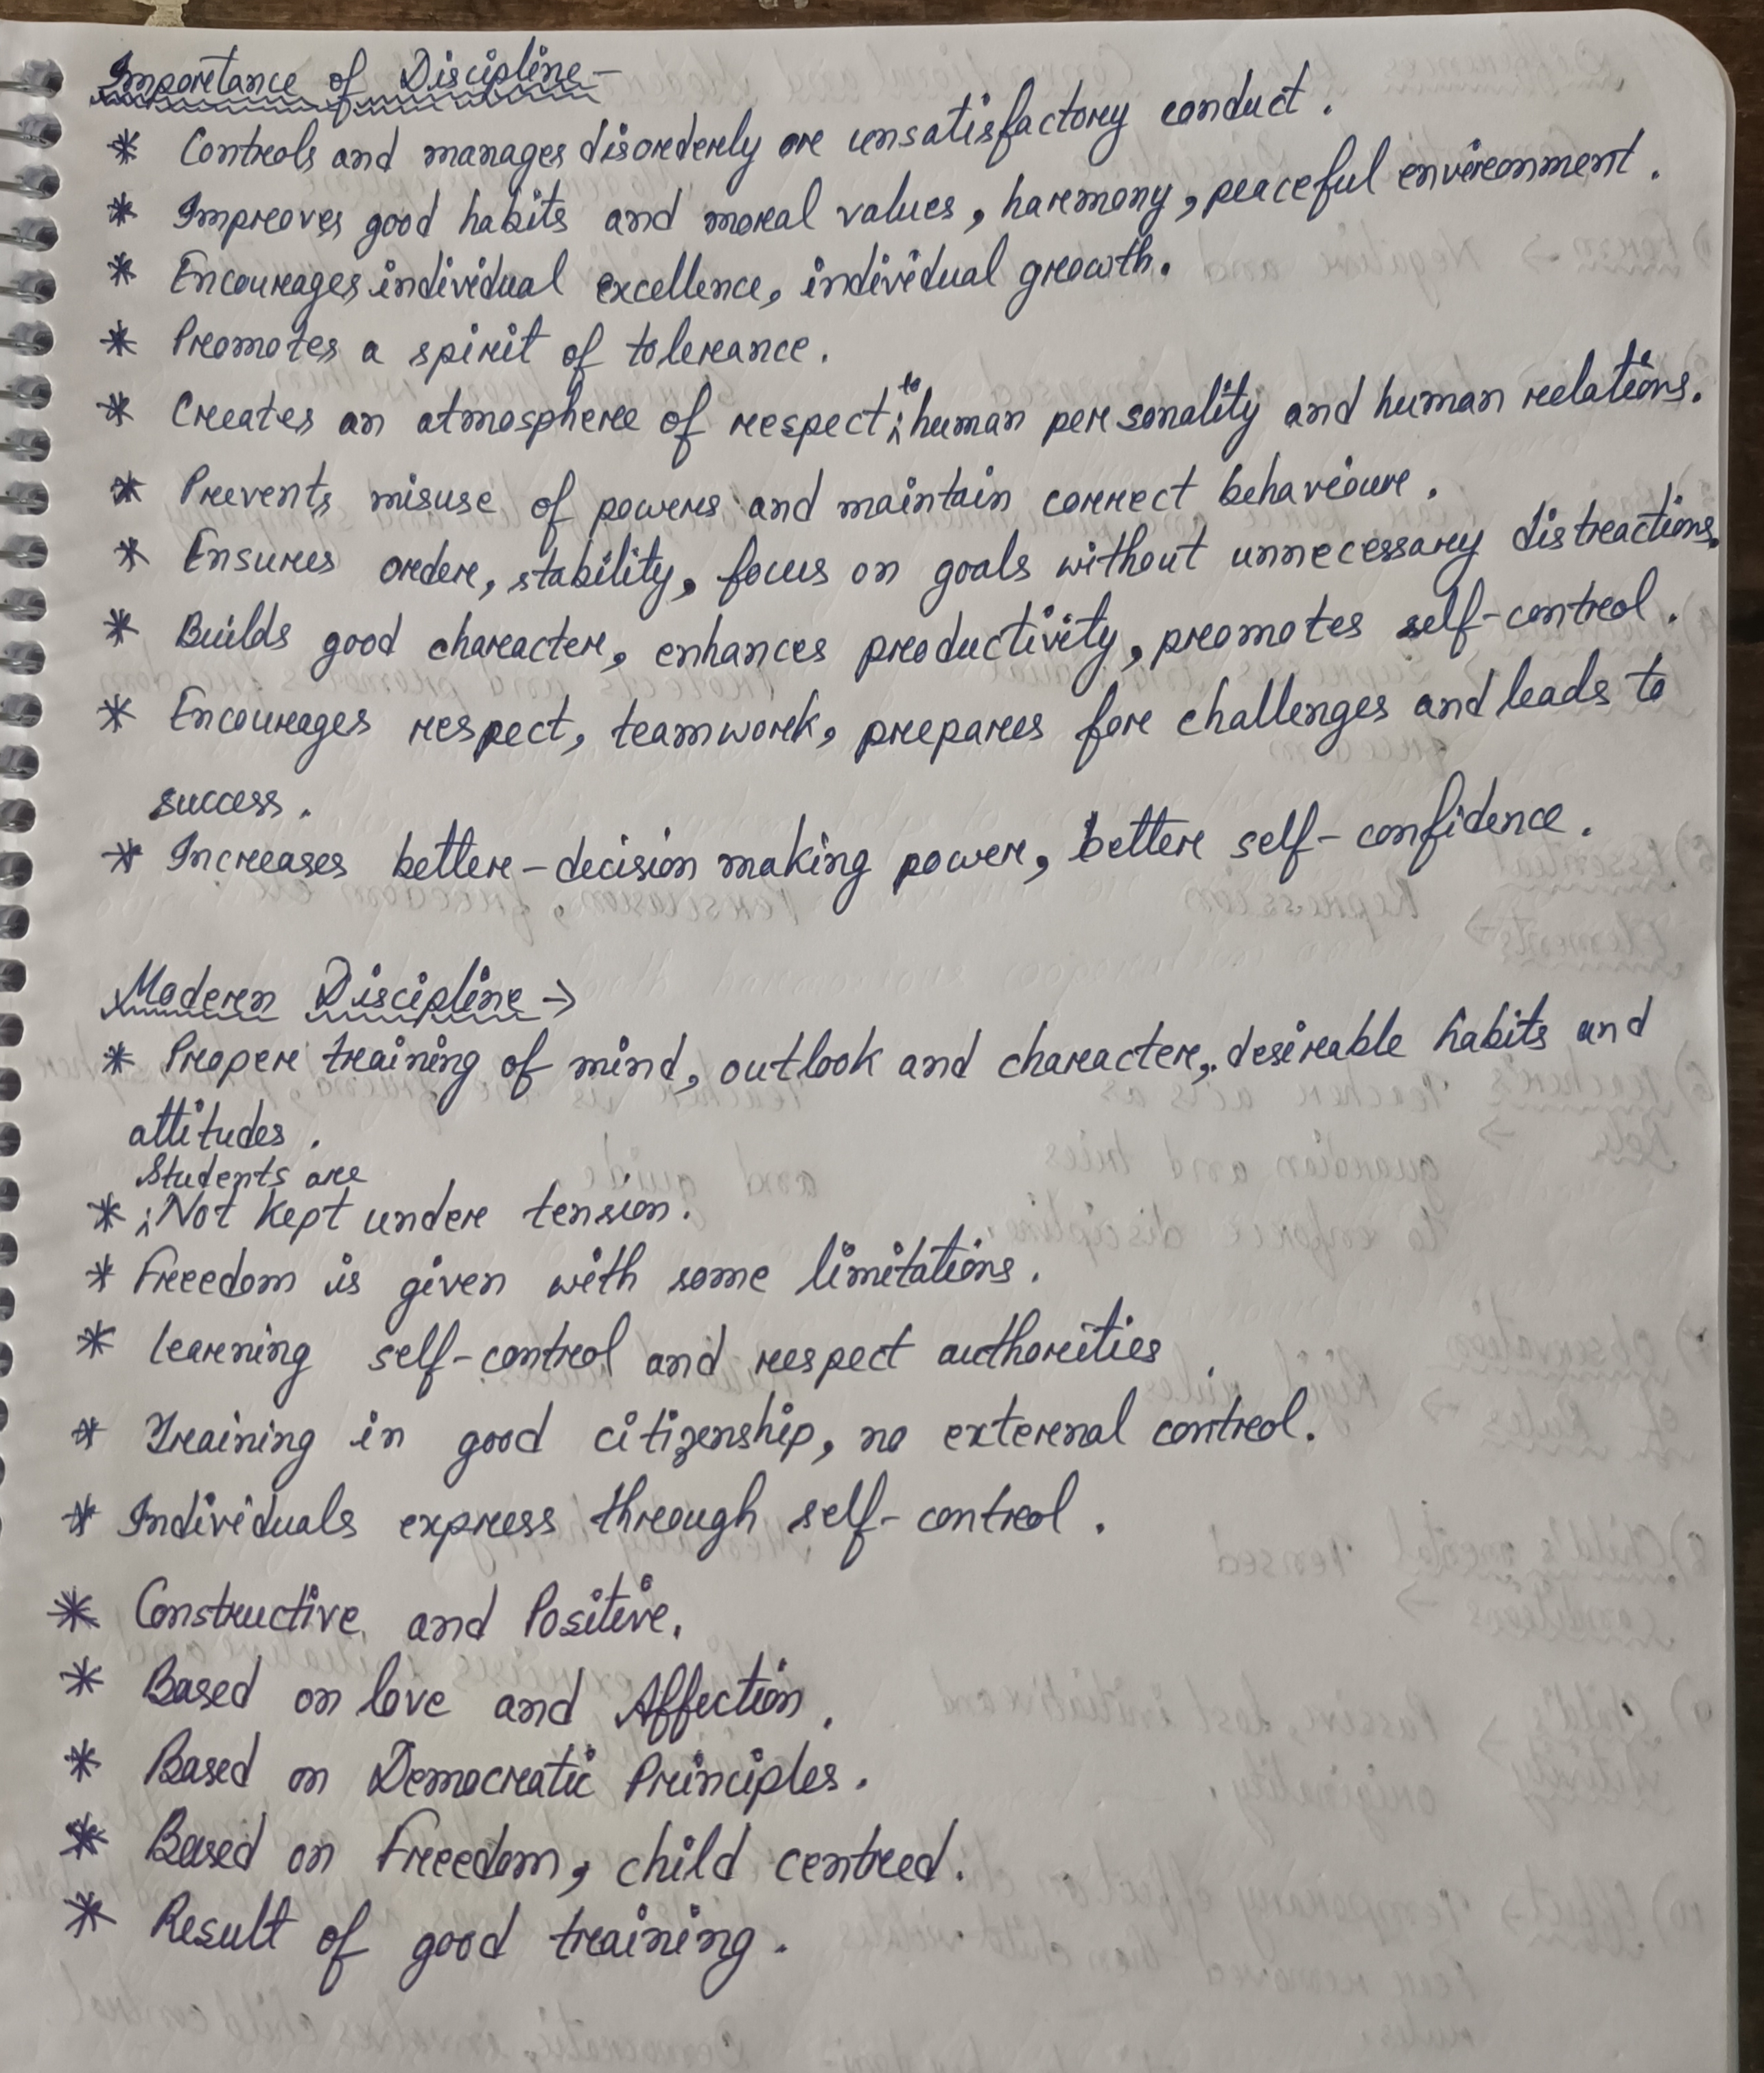 Importance of Discipline-
* Controls and manages disorderly or unsatisfactory conduct.
* Improves good habits and moral values, harmony, peaceful environment.
* Encourages individual excellence, individual growth.
* Promotes a spirit of tolerance.
* Creates an atmosphere of respect to human personality and human relations.
* Prevents misuse of powers and maintain correct behaviour.
* Ensures order, stability, focus on goals without unnecessary distractions.
* Builds good character, enhances productivity, promotes self-control.
* Encourages respect, teamwork, prepares for challenges and leads to
success.
* Increases better-decision making power, better self-confidence.
Modern Discipline →
* Proper training of mind, outlook and character, desirable habits and
attitudes.
* Students are Not kept under tension.
* Freedom is given with some limitations.
* Learning self-control and respect authorities.
* Training in good citizenship, no external control.
* Individuals express through self-control.
* Constructive and Positive.
* Based on love and Affection.
* Based on Democratic Principles.
* Based on Freedom, child centred.
* Result of good training.